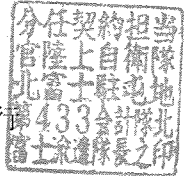 分任契約担当
官陸上自衛隊
北富士駐屯地
433会計隊北
富士派遣隊長之印